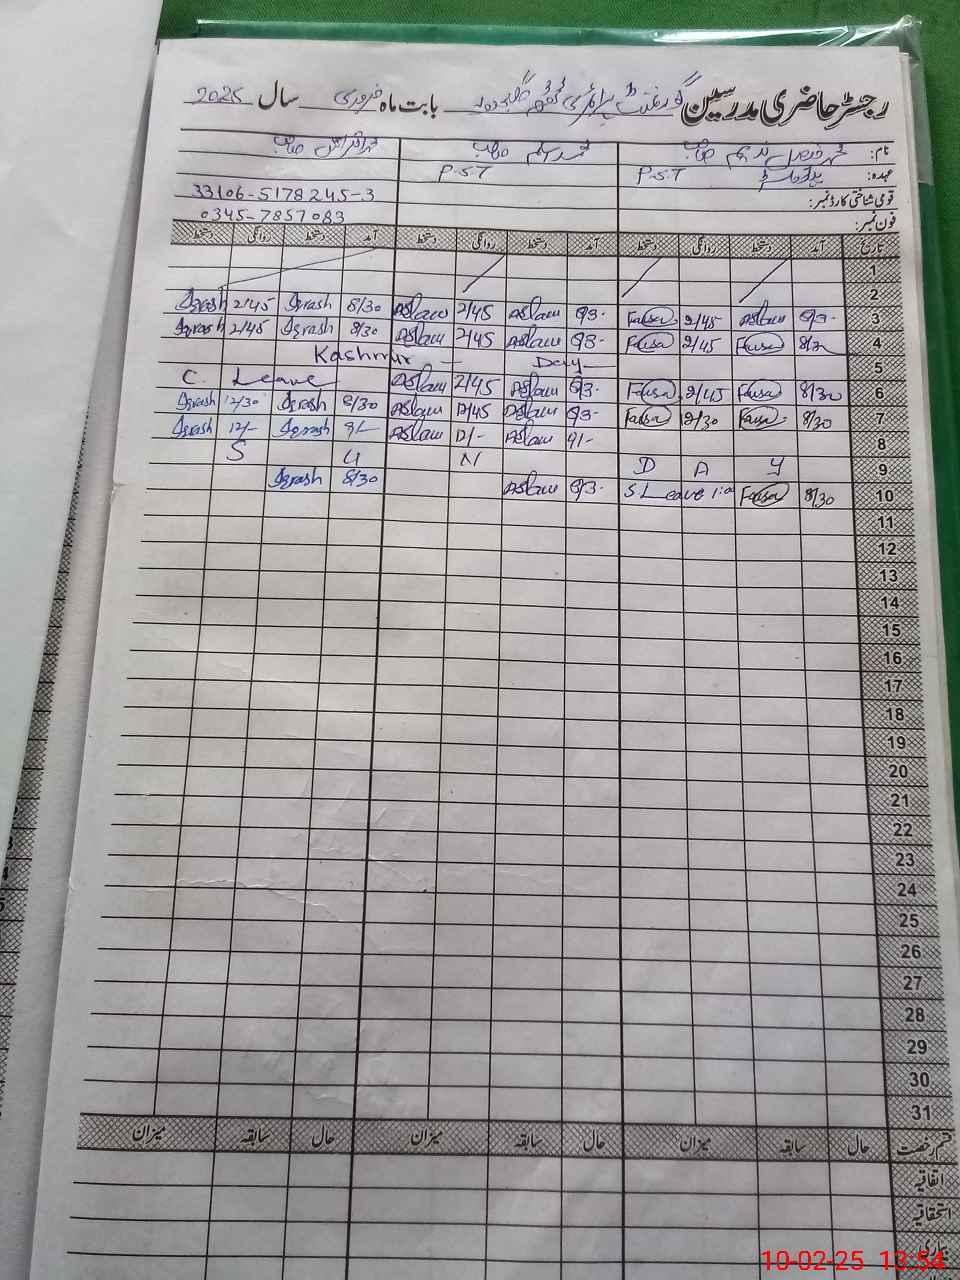 رجسٹر حاضری مدرسین گورنمنٹ پرائمری بابت ماہ فروری سال 2025
نام: محمد اسلم صاحب
عہدہ: P.S.T P.S.T
قومی شناختی کارڈ نمبر: 33106-5178245-3
فون نمبر: 0345-7857083
تاریخ آمد دستخط روانگی دستخط آمد دستخط روانگی دستخط آمد دستخط روانگی دستخط
1
2
Iqrash 2/45 Iqrash 8/30 Aslam 2/45 Aslam 8/3- Faisal 2/45 Aslam 8/3- 3
Iqrash 2/45 Iqrash 8/30 Aslam 2/45 Aslam 8/3- Faisal 2/45 Faisal 8/30 4
Kashmir - Day 5
C. Leave Aslam 2/45 Aslam 8/3- Faisal 2/45 Faisal 8/30 6
Iqrash 12/30 Iqrash 8/30 Aslam 12/45 Aslam 8/3- Faisal 12/30 Faisal 8/30 7
Iqrash 12/- Iqrash 9/- Aslam 12/- Aslam 9/- 8
S U N D A Y 9
Iqrash 8/30 Aslam 8/3- S Leave Faisal 8/30 10
11
12
13
14
15
16
17
18
19
20
21
22
23
24
25
26
27
28
29
30
31
قسم رخصت حال سابقہ میزان حال سابقہ میزان حال سابقہ میزان
اتفاقیہ
استحقاقیہ
بیماری
10-02-25 13:54